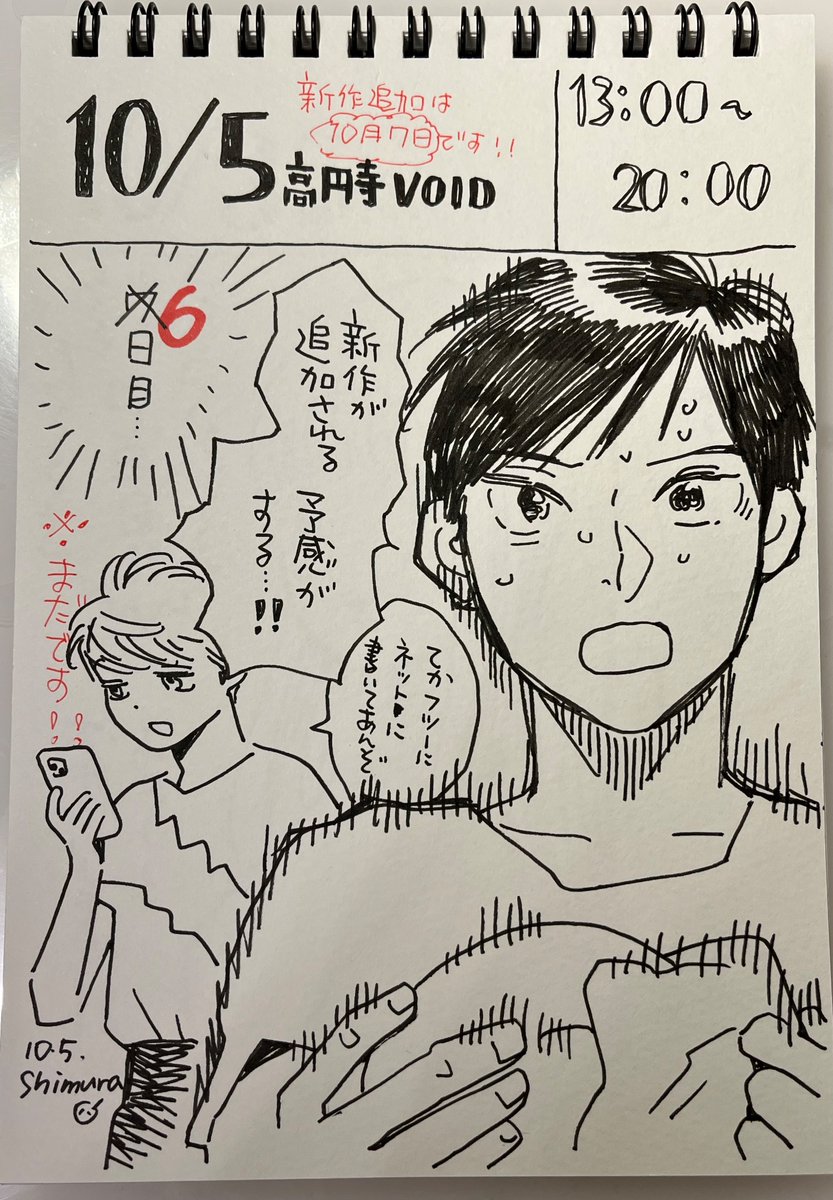 新作追加は
10月7日です!!
10/5 高円寺VOID
13:00~
20:00
6
日目…
新作が
追加される
予感が
する…!!
※まだです!!
てかフツーに
ネットに
書いてあんぞ
10.5.
Shimura